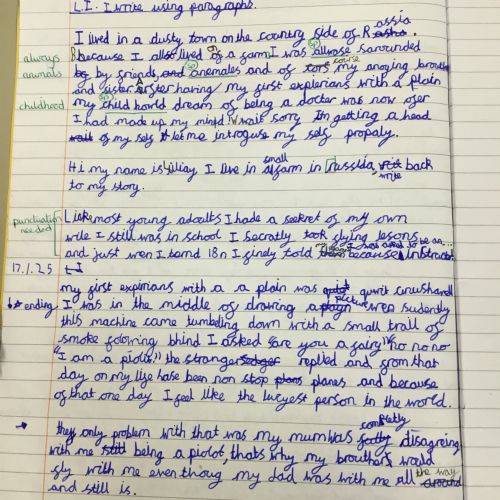 L.I. I write using paragraphs.
I lived in a dusty town on the country side of Rassia
always Because I allso lived of a farm I was allwase sarounded
animals by friends, anemales and of corse my anoying brouther
and sister. After having my first expiriens with a plain
childhood my child howld dream of being a docter was now ofer
I had made up my mind! Wait sorry Im getting a head
of my self let me introguse my self propaly.
Hi my name is I live in a small farm in Russida, back
to my story.
punctuation needed Like most young adoults I hade a seekret of my own
wile I still was in school I secratly took flying lesons
and just wen I ternd 18 I finely told because I was asked to be an... instructor
17.1.25
my first expirins with a a plain was quwit unushall
ending I was in the middle of drawing a picture wen sudently
this machine came tumbeling down with a small trail of
smoke foloring bhind I asked "are you a fairy" "no no no
"I am a piolot" the stranger replied and from that
day on my life hase been non stop planes and because
of that one day I feel like the luceyest person in the world.
they only problem with that was my mum was compleatly disagreing
with me being a piolot, thats why my brouther would
fly with me even thouy my dad was with me all the way
and still is.